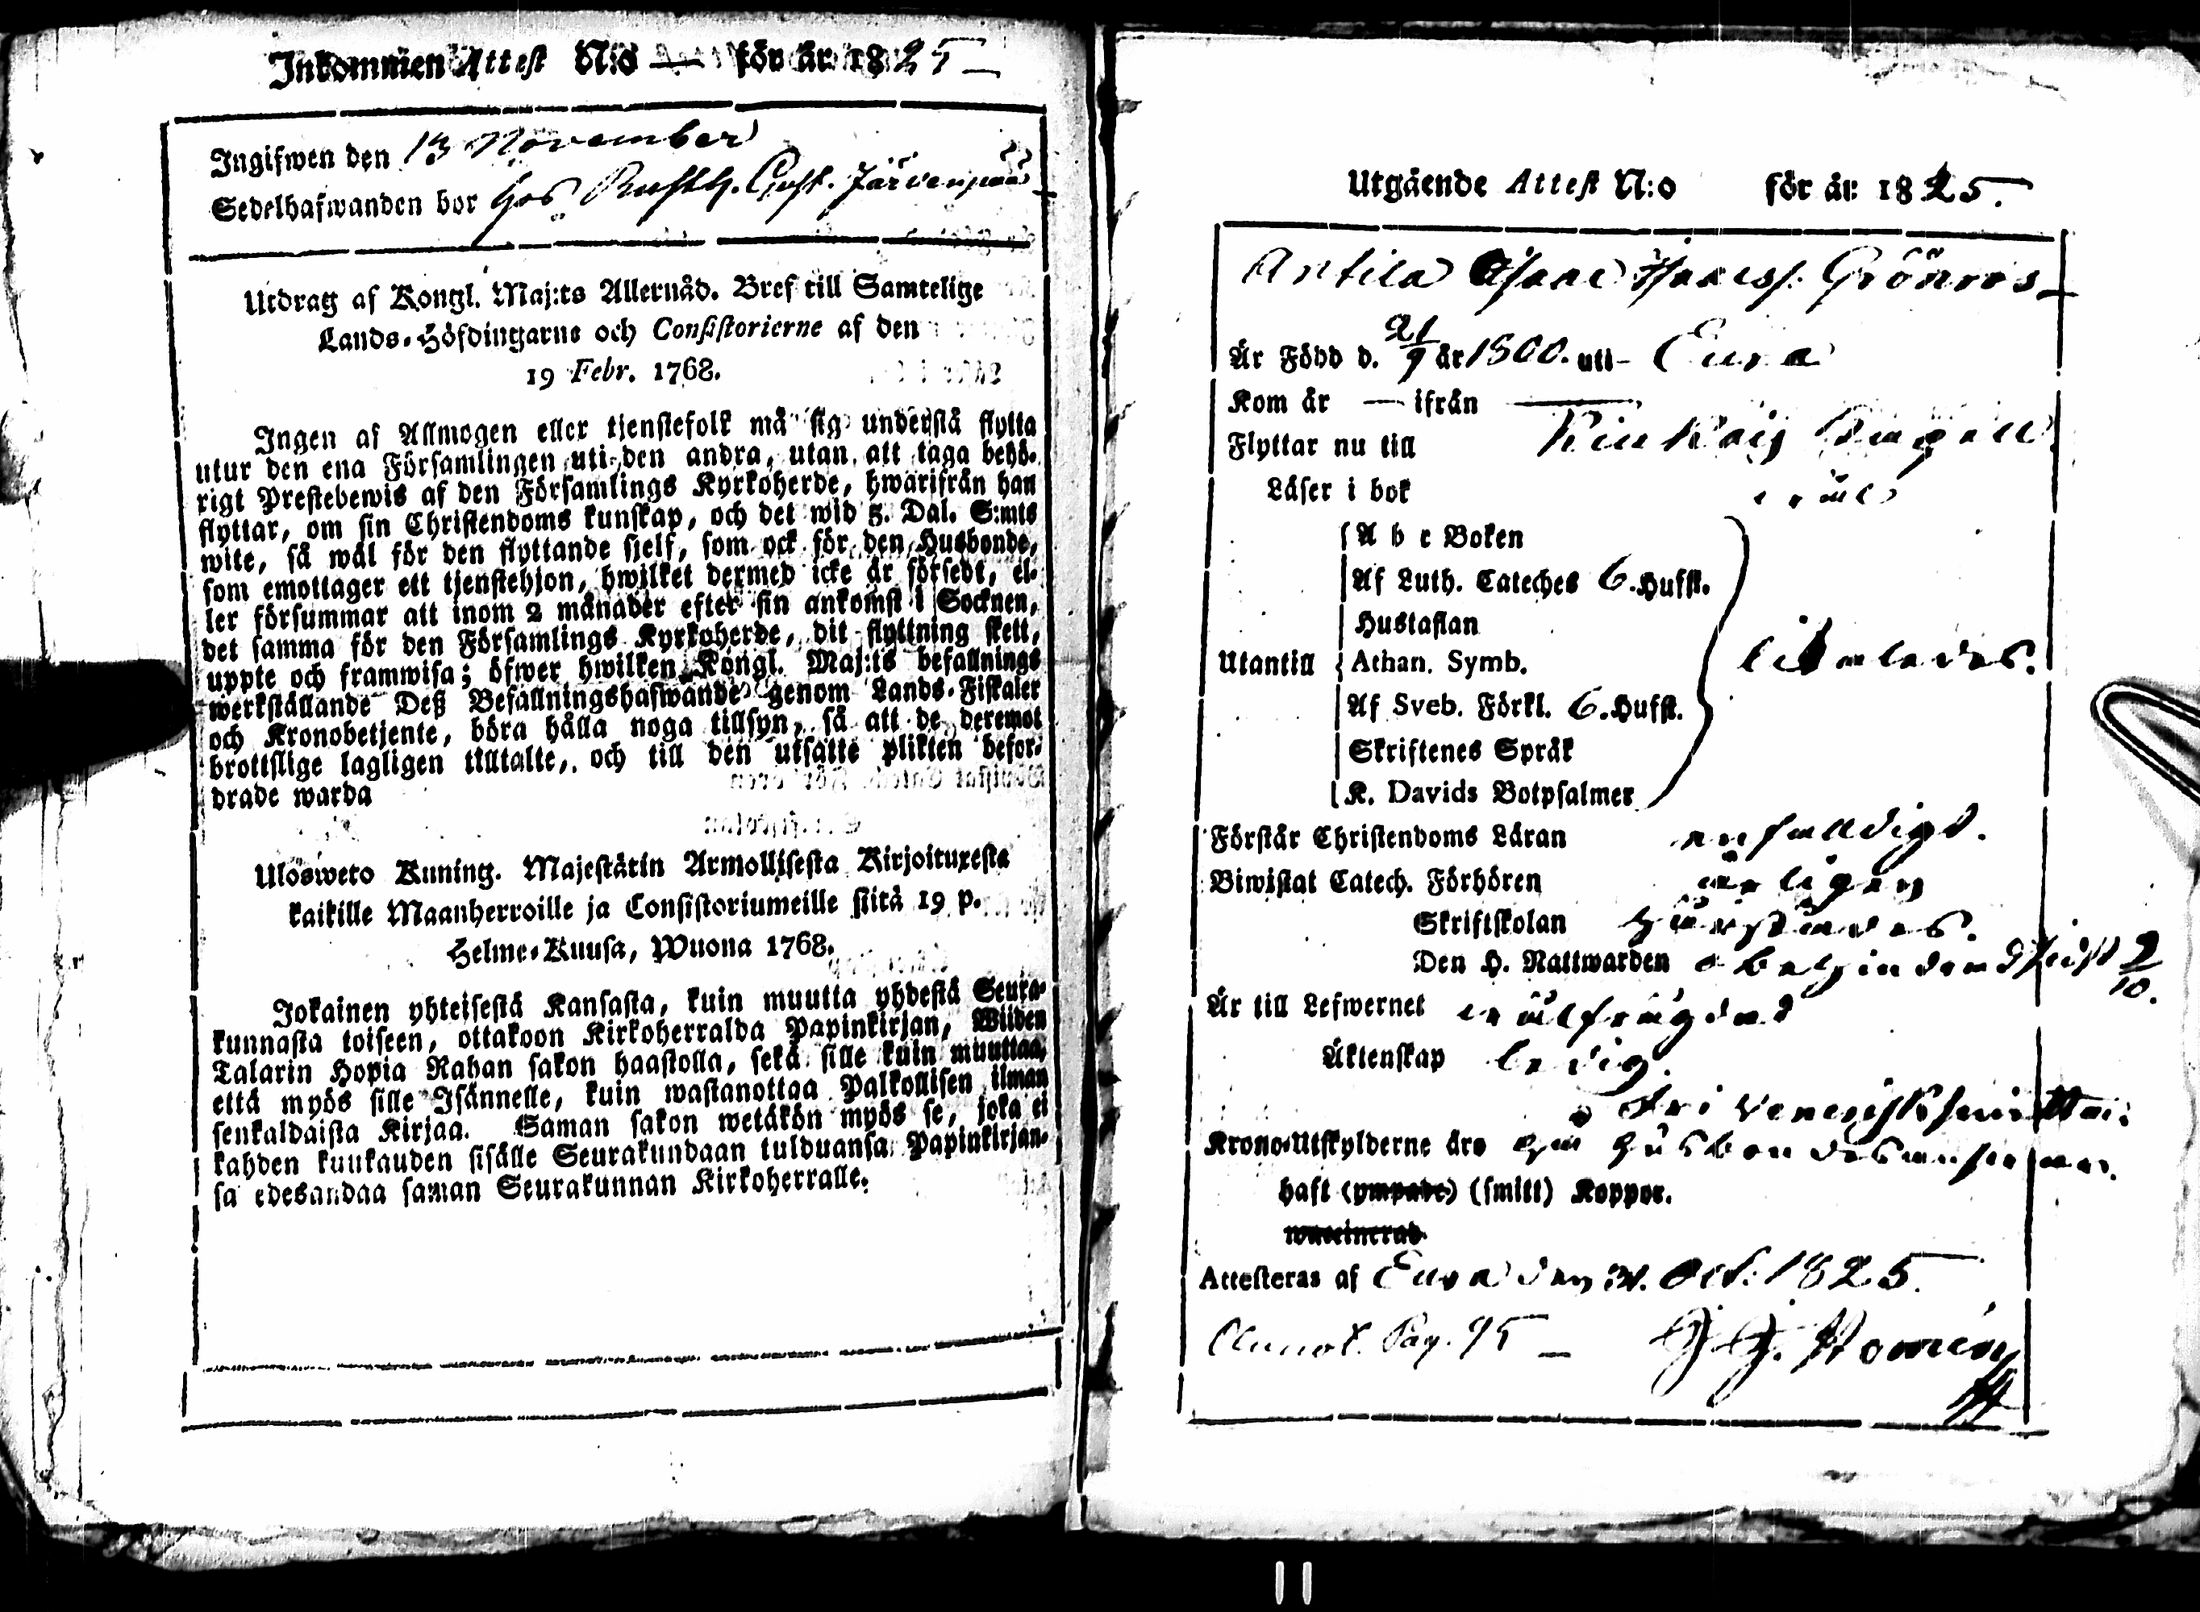 Inkommen Attest N:o — för år 1825 —
Ingifwen den 13 November
Sedelhafwanden bor hos Rusth. Gust. Järvenpää
Utdrag af Kongl. Maj:ts Allernåd. Bref till Samtelige
Lands-Höfdingarne och Consistorierne af den
19 Febr. 1768.
Ingen af Allmogen eller tjenstefolk må sig understå flytta
utur den ena Församlingen uti den andra, utan att taga behö-
rigt Prestebewis af den Församlings Kyrkoherde, hwarifrån han
flyttar, om sin Christendoms kunskap, och det wid 5. Dal. S:mts
wite, så wäl för den flyttande sjelf, som ock för den Husbonde,
som emottager ett tjenstehjon, hwilket dermed icke är försedt, el-
ler försummar att inom 2 månader efter sin ankomst i Socknen,
det samma för den Församlings Kyrkoherde, dit flyttning skett,
uppte och framwisa; öfwer hwilken Kongl. Maj:ts befallnings
werkställande Deß Befallningshafwande genom Lands-Fiskaler
och Kronobetjente, böra hålla noga tillsyn, så att de deremot
brottslige lagligen tilltalte, och till den utsatte plikten befor-
drade warda
Ulosweto Kuning. Majestätin Armollisesta Kirjoituxesta
kaikille Maanherroille ja Consistoriumeille siitä 19 p.
Helme-Kuusa, Wuona 1768.
Jokainen yhteisestä Kansasta, kuin muutta yhdestä Seura-
kunnasta toiseen, ottakoon Kirkoherralda Papinkirjan, Wiiden
Talarin Hopia Rahan sakon haastolla, sekä sille kuin muuttaa,
että myös sille Isännelle, kuin wastanottaa Palkollisen ilman
senkaldaista Kirjaa. Saman sakon wetäkön myös se, joka ei
kahden kuukauden sisälle Seurakundaan tulduansa Papinkirjan-
sa edesandaa saman Seurakunnan Kirkoherralle.
Utgående Attest N:o för år 1825.
Antila Isaac Isaacss. Grönroos
Är Född d. 21/9 år 1800. uti Eura
Kom år — ifrån —
Flyttar nu till Kiukais Capell
Läser i bok wäl
A b c Boken
Af Luth. Cateches 6. Hufst.
Hustaflan
Utantill Athan. Symb.
Af Sveb. Förkl. 6. Hufst.
Skriftenes Språk
K. Davids Botpsalmer
Förstår Christendoms Läran enfaldigt.
Biwistat Catech. Förhören årligen
Skriftskolan
Den H. Nattwarden obehindrad sidst 9/10.
Är till Lefwernet wälfrägdad
Äktenskap ledig.
Fri Venerisk smitta.
Krono-Utskylderne äro husbondes ansvar.
haft (ympade) (smitt) Koppor.
waccinerad
Attesteras af Eura den 31. Oct. 1825.
Annot. Pag. 95 —